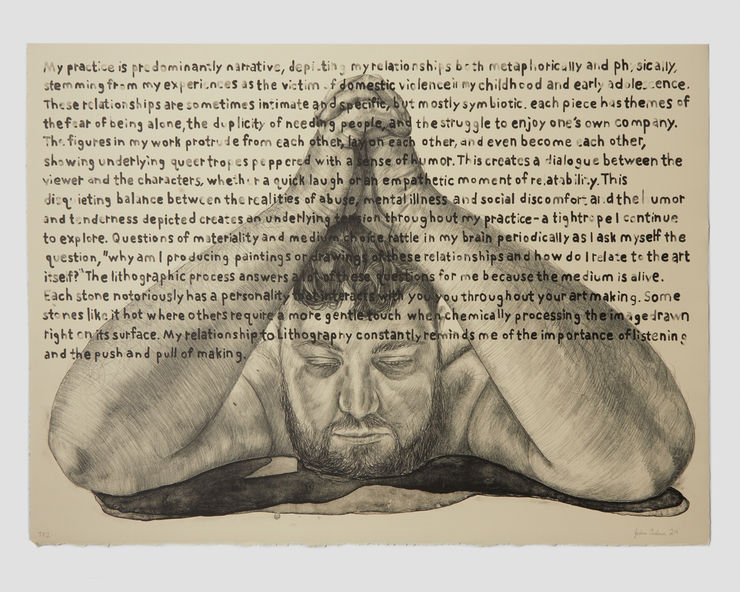 My practice is predominantly narrative, depicting my relationships both metaphorically and physically,
stemming from my experiences as the victim of domestic violence in my childhood and early adolescence.
These relationships are sometimes intimate and specific, but mostly symbiotic. each piece has themes of
the fear of being alone, the duplicity of needing people, and the struggle to enjoy one's own company.
The figures in my work protrude from each other, lay on each other, and even become each other,
showing underlying queer tropes peppered with a sense of humor. This creates a dialogue between the
viewer and the characters, whether a quick laugh or an empathetic moment of relatability. This
disquieting balance between the realities of abuse, mental illness and social discomfort and the humor
and tenderness depicted creates an underlying tension throughout my practice - a tightrope I continue
to explore. Questions of materiality and medium choice rattle in my brain periodically as I ask myself the
question, "why am I producing paintings or drawings of these relationships and how do I relate to the art
itself?" The lithographic process answers a lot of these questions for me because the medium is alive.
Each stone notoriously has a personality that interacts with you you throughout your art making. Some
stones like it hot where others require a more gentle touch when chemically processing the image drawn
right on its surface. My relationship to Lithography constantly reminds me of the importance of listening
and the push and pull of making.